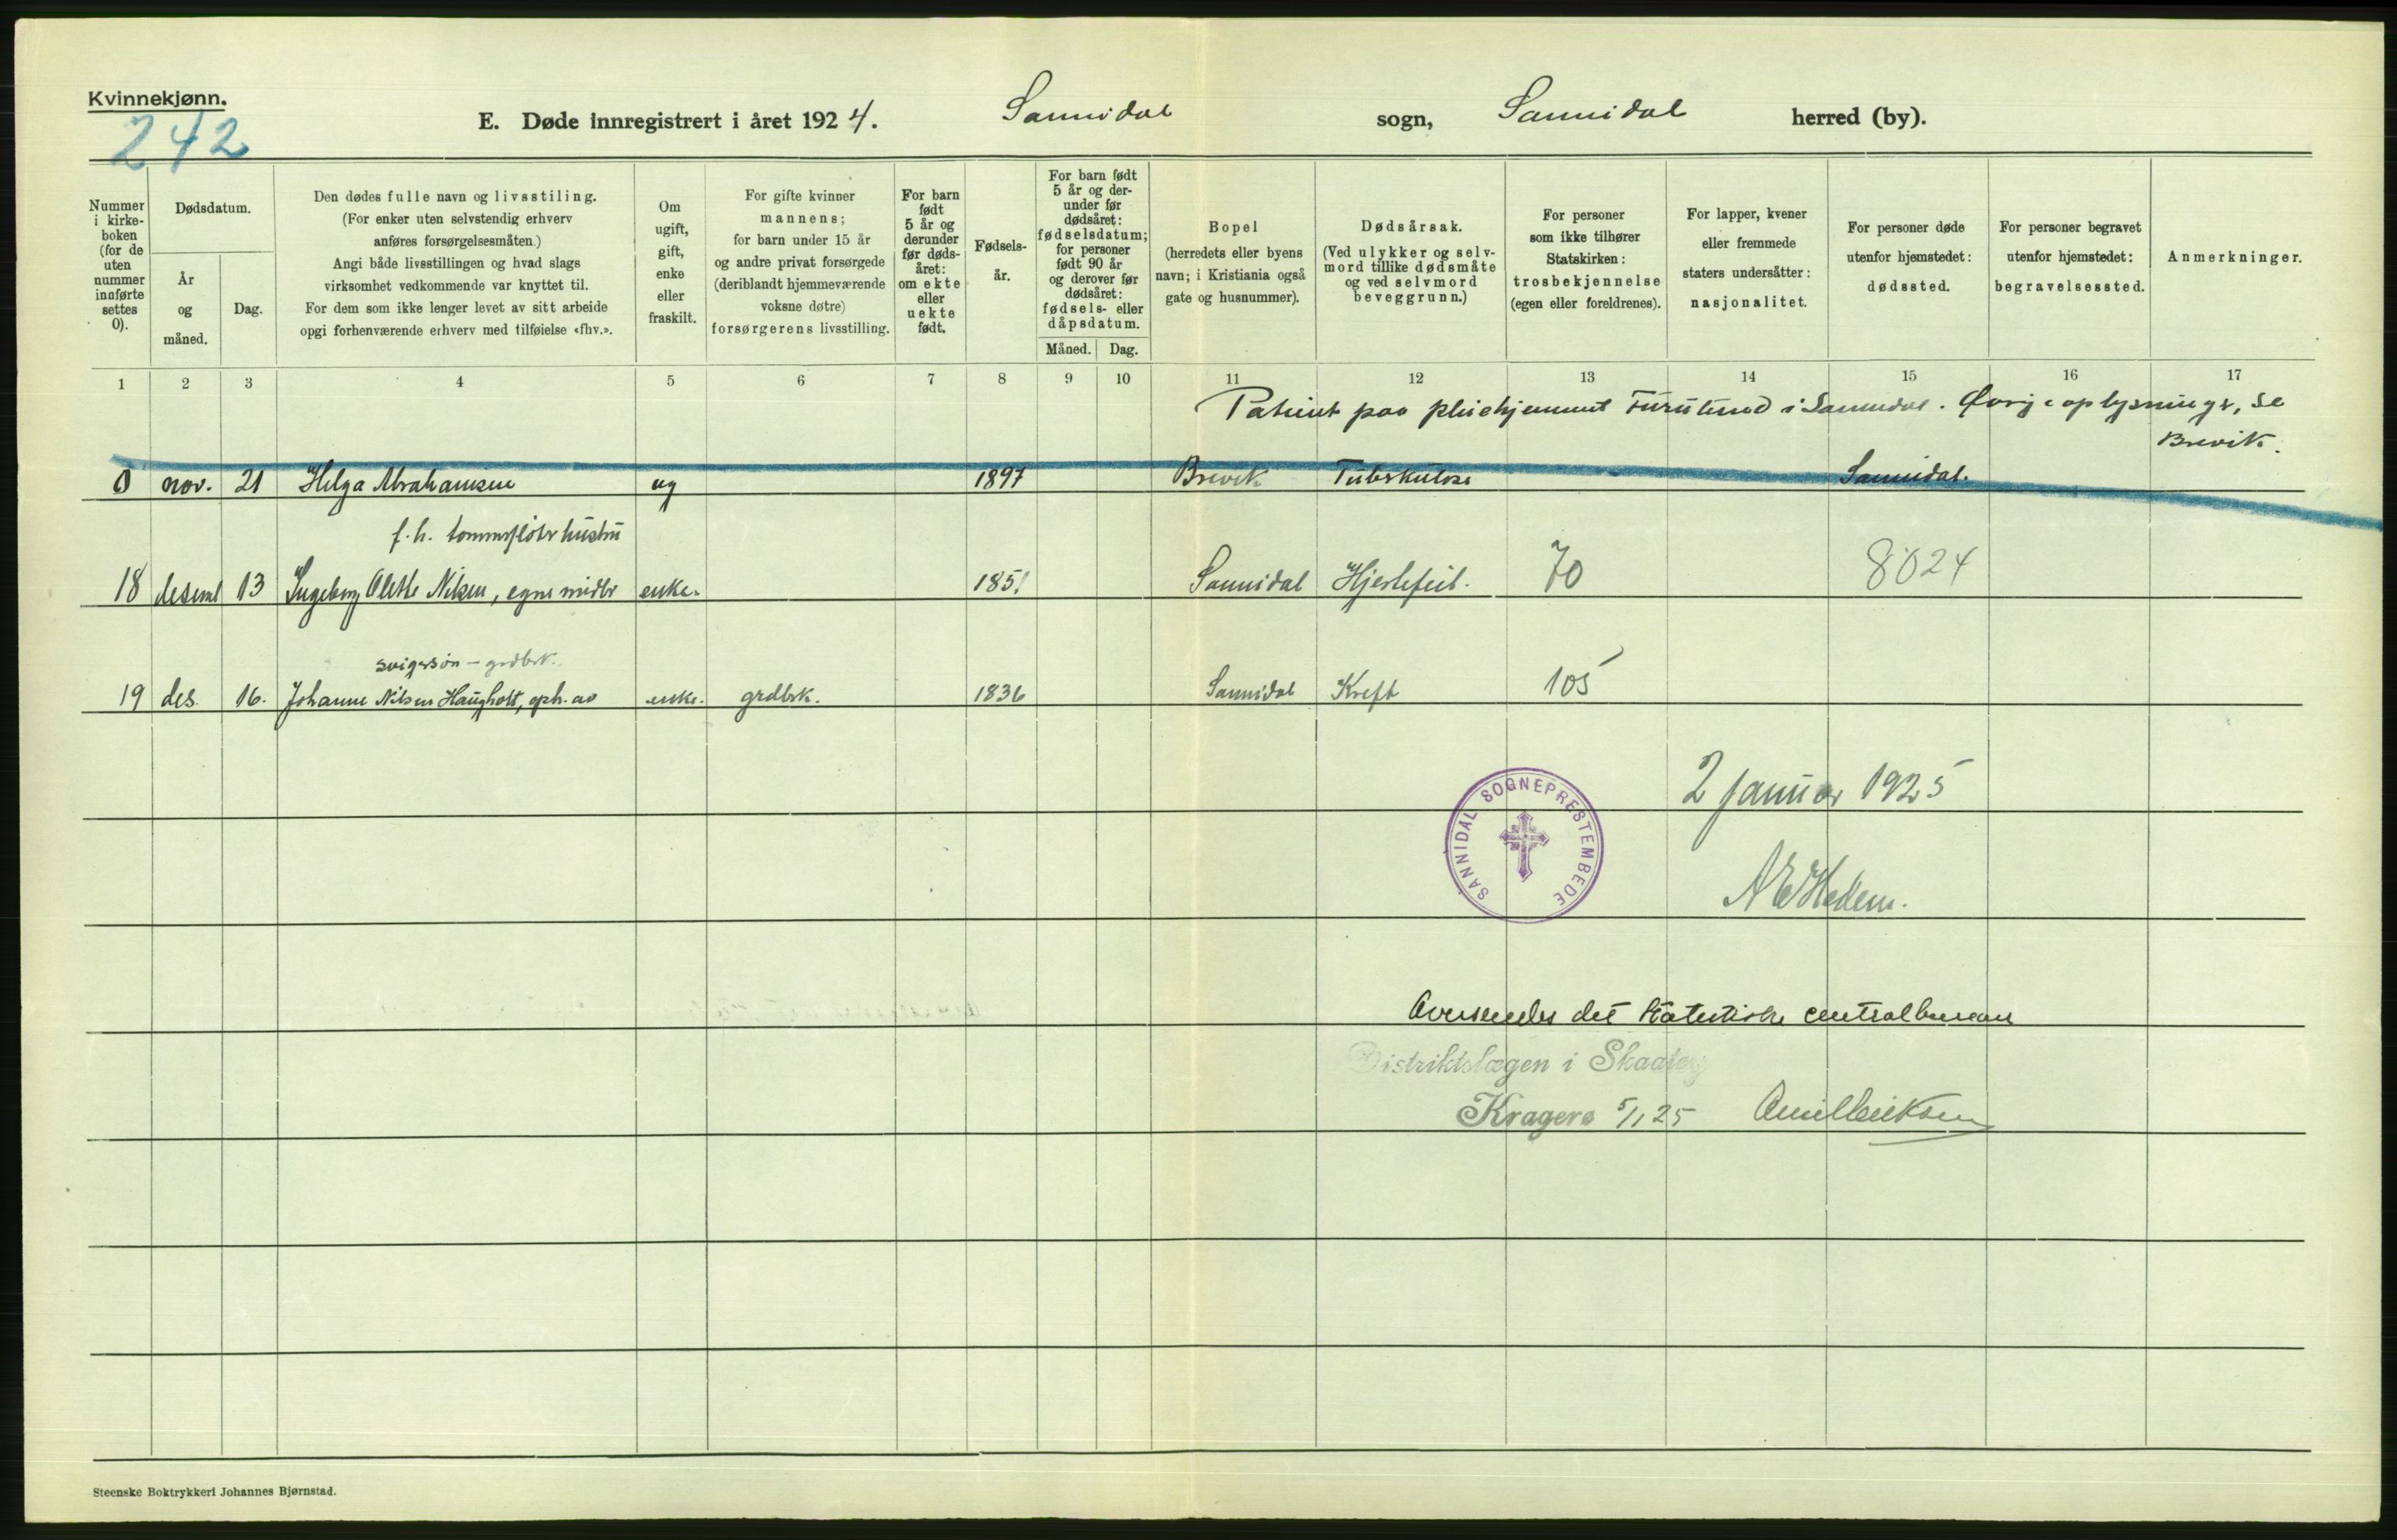 Kvinnekjønn.
242
E. Døde innregistrert i året 1924. Sannidal sogn, Sannidal herred (by).
Nummer i kirke- boken (for de uten nummer innførte settes 0).
Dødsdatum.
År og måned.
Dag.
Den dødes fulle navn og livsstiling.
(For enker uten selvstendig erhverv
anføres forsørgelsesmåten.)
Angi både livsstillingen og hvad slags
virksomhet vedkommende var knyttet til.
For dem som ikke lenger levet av sitt arbeide
opgi forhenværende erhverv med tilføielse «fhv.».
Om ugift, gift, enke eller fraskilt.
For gifte kvinner
mannens;
for barn under 15 år
og andre privat forsørgede
(deriblandt hjemmeværende
voksne døtre)
forsørgerens livsstilling.
For barn født 5 år og derunder før døds- året: om ekte eller uekte født.
Fødsels- år.
For barn født 5 år og der- under før dødsåret: fødselsdatum; for personer født 90 år og derover før dødsåret: fødsels- eller dåpsdatum.
Måned. Dag.
Bopel
(herredets eller byens
navn; i Kristiania også
gate og husnummer).
Dødsårsak.
(Ved ulykker og selv-
mord tillike dødsmåte
og ved selvmord
beveggrunn.)
For personer
som ikke tilhører
Statskirken:
trosbekjennelse
(egen eller foreldrenes).
For lapper, kvener
eller fremmede
staters undersåtter:
nasjonalitet.
For personer døde
utenfor hjemstedet:
dødssted.
For personer begravet
utenfor hjemstedet:
begravelsessted.
Anmerkninger.
1 2 3 4 5 6 7 8 9 10 11 12 13 14 15 16 17
Patient paa pleiehjemmet Furulund i Sannidal. Øvrige oplysninger, se
Brevik.
0 nov. 21 Helga Abrahamsen ug 1897 Brevik Tuberkulose Sannidal.
f.h. tømmerfløter hustru
18 desemb 13 Ingeborg Olette Nilsen, egne midler enke. 1851 Sannidal Hjertefeil. 70 8024
svigersøn – grdbrk.
19 des. 16. Johanne Nilsen Haugholt, oph. av enke. grdbrk. 1836 Sannidal Kreft 105
SANNIDAL SOGNEPRESTEMBEDE
2 januar 1925
Oversendes det statistiske centralbureau
Distriktslægen i Skaatøy
Kragerø 5/1 25
Steenske Boktrykkeri Johannes Bjørnstad.